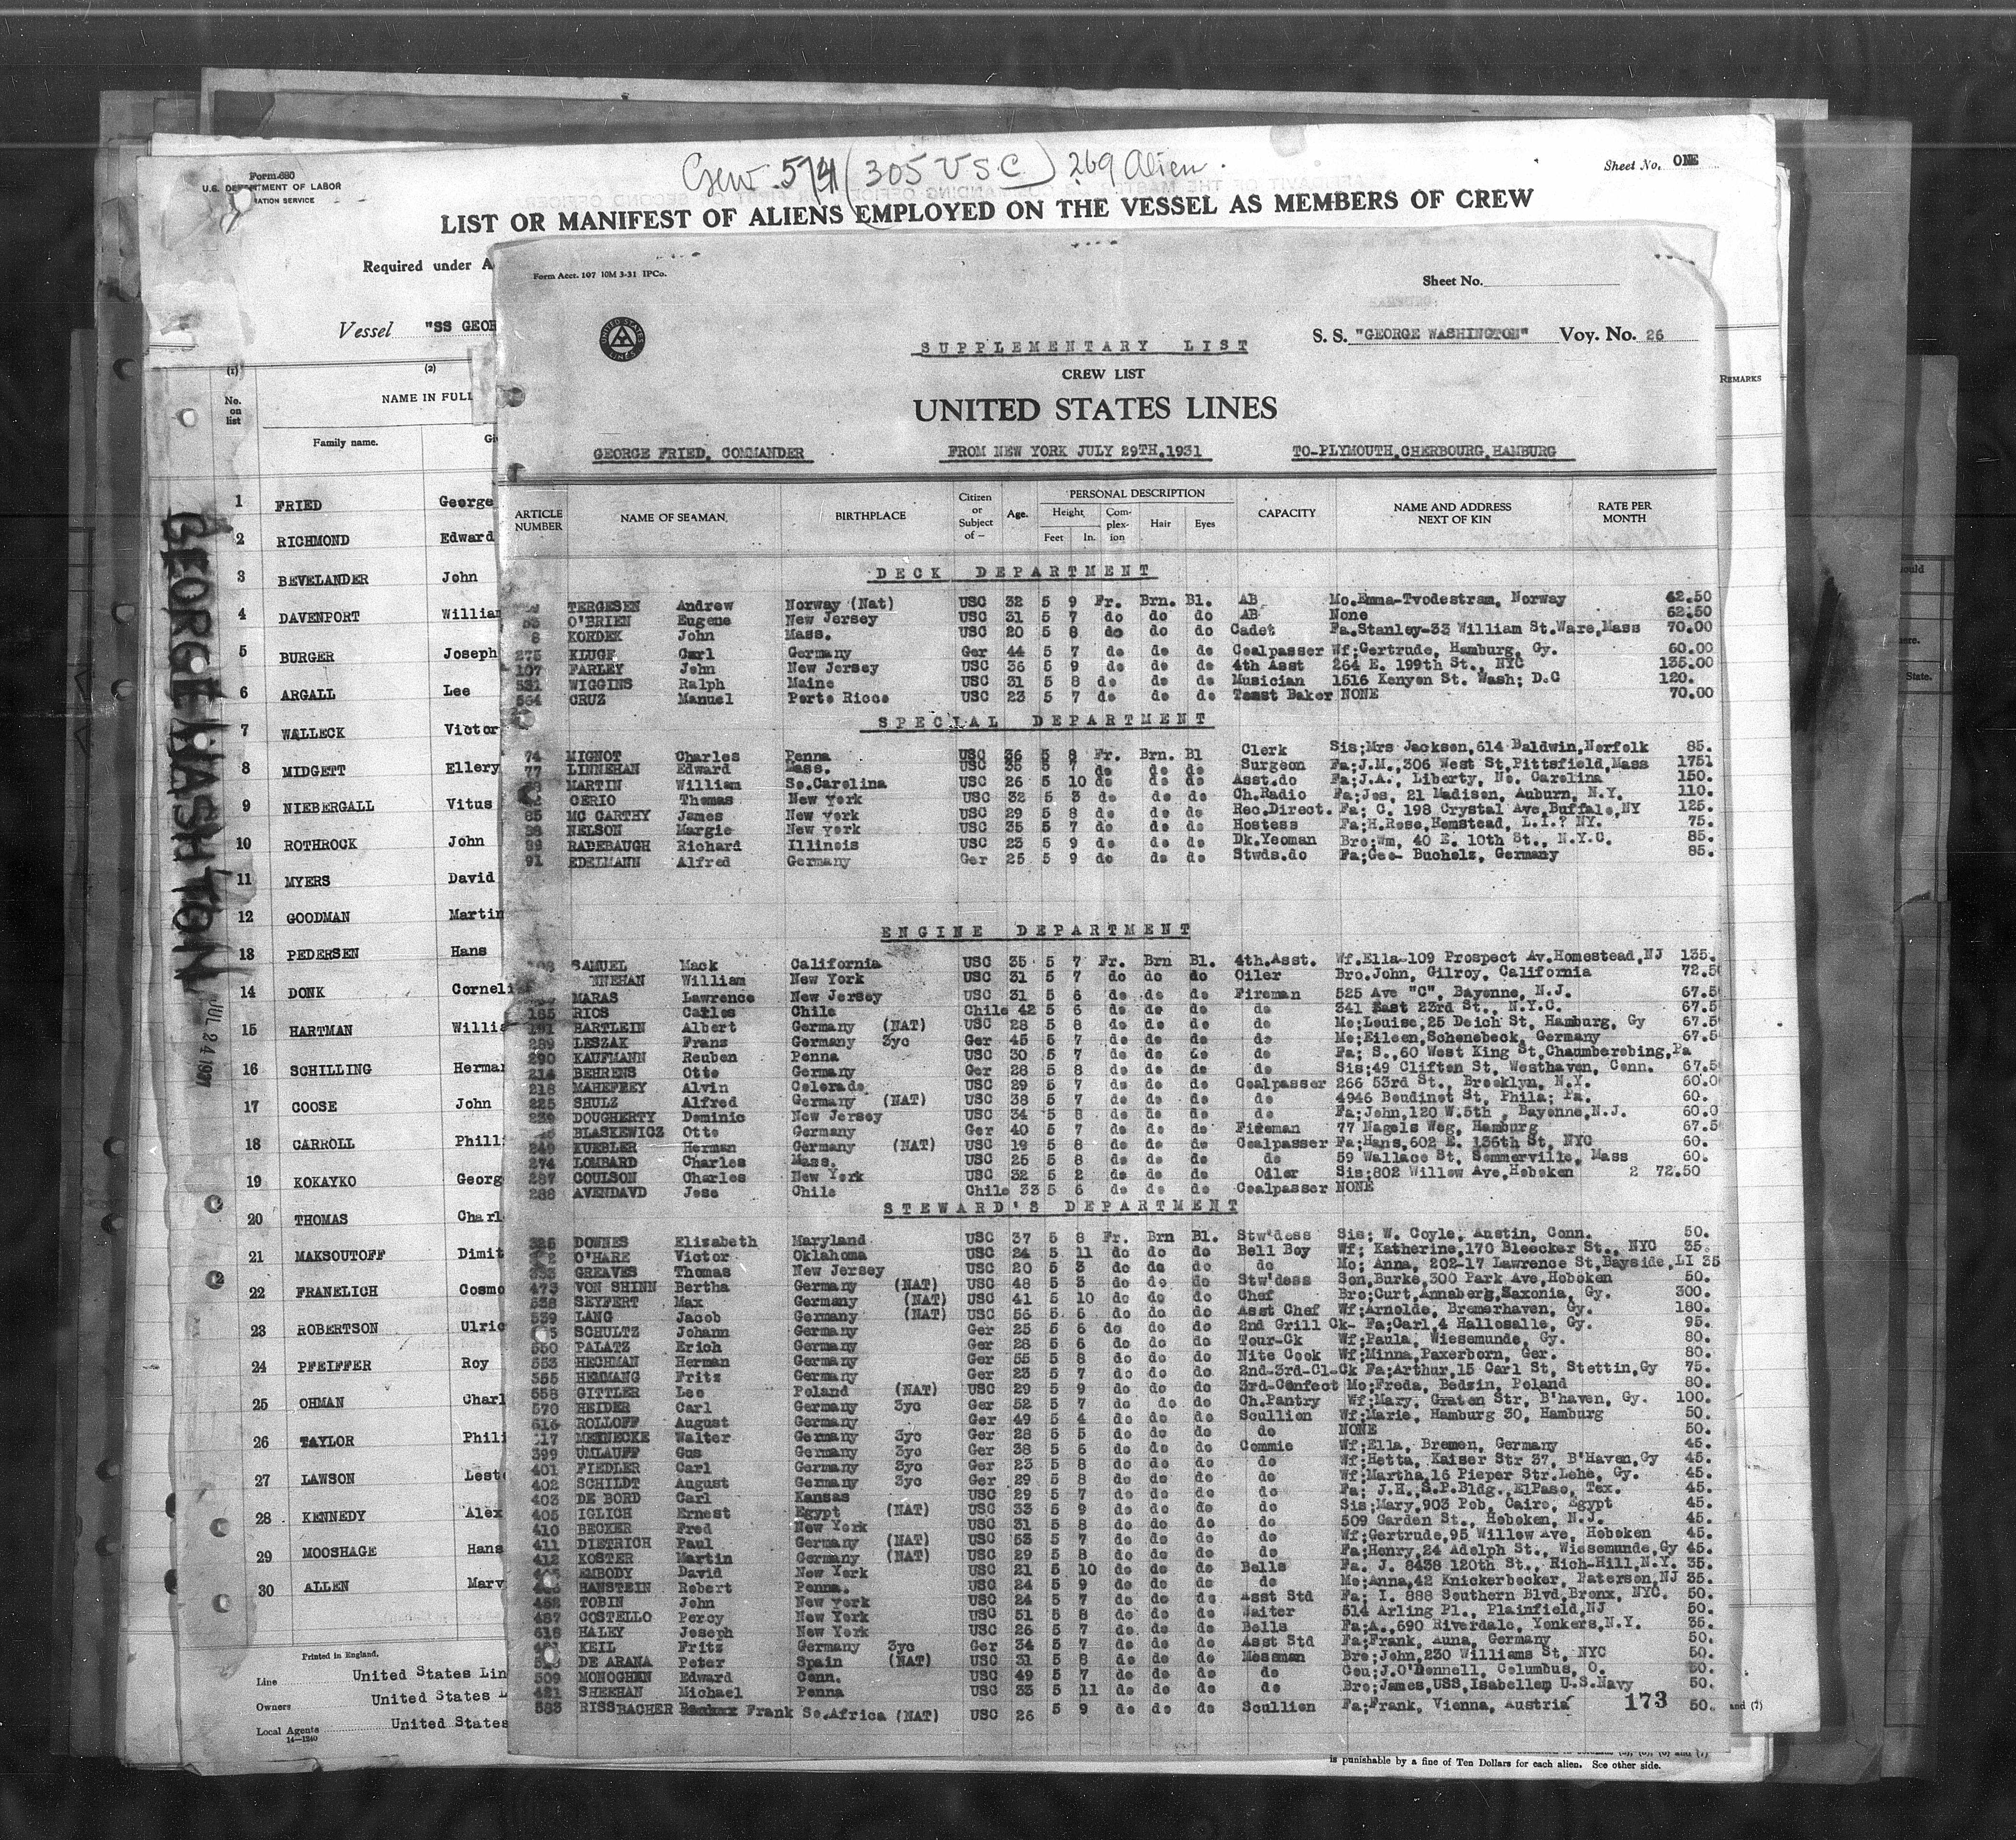 Crew 574 (305 USC) 269 Alien.
Sheet No. ONE
Form 680
U.S. DEPARTMENT OF LABOR
LIST OR MANIFEST OF ALIENS EMPLOYED ON THE VESSEL AS MEMBERS OF CREW
Required under A
Vessel "SS GEOR
(1) (2)
No. on list
NAME IN FULL
Family name.
GEORGE WASHINGTON
JUL 24 1931
1 FRIED George
2 RICHMOND Edward
3 BEVELANDER John
4 DAVENPORT William
5 BURGER Joseph
6 ARGALL Lee
7 WALLECK Victor
8 MIDGETT Ellery
9 NIEBERGALL Vitus
10 ROTHROCK John
11 MYERS David
12 GOODMAN Martin
13 PEDERSEN Hans
14 DONK Corneli
15 HARTMAN Willia
16 SCHILLING Herma
17 COOSE John
18 CARROLL Philli
19 KOKAYKO Georg
20 THOMAS Charl
21 MAKSOUTOFF Dimit
22 FRANELICH Cosmo
23 ROBERTSON Ulric
24 PFEIFFER Roy
25 OHMAN Charl
26 TAYLOR Phili
27 LAWSON Lest
28 KENNEDY Alex
29 MOOSHAGE Hans
30 ALLEN Marv
Printed in England.
Line United States Lin
Owners United States L
Local Agents United States
14—1240
Form Acct. 107 10M 3-31 IPCo.
Sheet No.
UNITED STATES LINES
S. S. "GEORGE WASHINGTON" Voy. No. 26
SUPPLEMENTARY LIST
CREW LIST
UNITED STATES LINES
GEORGE FRIED, COMMANDER FROM NEW YORK JULY 29TH,1931 TO-PLYMOUTH,CHERBOURG,HAMBURG
ARTICLE NUMBER NAME OF SEAMAN, BIRTHPLACE Citizen or Subject of — Age. PERSONAL DESCRIPTION Height, Feet In. Complexion Hair Eyes CAPACITY NAME AND ADDRESS NEXT OF KIN RATE PER MONTH
DECK DEPARTMENT
TERGESEN Andrew Norway (Nat) USC 32 5 9 Fr. Brn. Bl. AB Mo.Emma-Tvodestram, Norway 62.50
O'BRIEN Eugene New Jersey USC 31 5 7 do do do AB None 62.50
8 KORDEK John Mass. USC 20 5 8 do do do Cadet Fa.Stanley-33 William St.Ware,Mass 70.00
275 KLUGE Carl Germany Ger 44 5 7 do do do Coalpasser Wf;Gertrude, Hamburg, Gy. 60.00
107 FARLEY John New Jersey USC 36 5 9 do do do 4th Asst 264 E. 199th St., NYC 135.00
531 WIGGINS Ralph Maine USC 31 5 8 do do do Musician 1516 Kenyon St. Wash; D.C 120.
564 CRUZ Manuel Porto Rico USC 23 5 7 do do do Toast Baker NONE 70.00
SPECIAL DEPARTMENT
74 MIGNOT Charles Penna USC 36 5 8 Fr. Brn. Bl Clerk Sis;Mrs Jackson,614 Baldwin,Norfolk 85.
77 LINNEHAN Edward Mass. USC 35 5 7 do do do Surgeon Fa;J.M.,306 West St,Pittsfield,Mass 1751
MARTIN William So.Carolina USC 26 5 10 do do do Asst.do Fa;J.A., Liberty, No. Carolina 150.
CERIO Thomas New York USC 32 5 3 do do do Ch.Radio Fa;Jos, 21 Madison, Auburn, N.Y. 110.
85 MC CARTHY James New York USC 29 5 8 do do do Rec.Direct. Fa; C. 198 Crystal Ave,Buffalo,NY 125.
88 NELSON Margie New York USC 35 5 7 do do do Hostess Fa;H.Rose,Hemstead, L.I.? NY. 75.
89 RADEBAUGH Richard Illinois USC 23 5 9 do do do Dk.Yeoman Bro;Wm, 40 E. 10th St., N.Y.C. 85.
91 EDELMANN Alfred Germany Ger 25 5 9 do do do Stwds.do Fa;Geo- Bucholz, Germany 85.
ENGINE DEPARTMENT
SAMUEL Mack California USC 35 5 7 Fr. Brn Bl. 4th.Asst. Wf.Ella-109 Prospect Av.Homestead,NJ 135.
NNEHAN William New York USC 31 5 7 do do do Oiler Bro.John, Gilroy, California 72.50
MARAS Lawrence New Jersey USC 31 5 6 do do do Fireman 525 Ave "C", Bayonne, N.J. 67.5
185 RIOS Carlos Chile Chile 42 5 6 do do do do 341 East 23rd St., N.Y.C. 67.5
191 HARTLEIN Albert Germany (NAT) USC 28 5 8 do do do do Mo;Louise,25 Deich St, Hamburg, Gy 67.5
289 LESZAK Frans Germany 3yc Ger 45 5 7 do do do do Mo;Eileen,Schonebeck, Germany 67.5
290 KAUFMANN Reuben Penna USC 30 5 7 do do do do Fa; S.,60 West King St,Chaumberebing,Pa
214 BEHRENS Otto Germany Ger 28 5 8 do do do do Sis;49 Clifton St, Westhaven, Conn. 67.5
218 MAHEFREY Alvin Colorado USC 29 5 7 do do do Coalpasser 266 53rd St., Brooklyn, N.Y. 60.0
225 SHULZ Alfred Germany (NAT) USC 38 5 7 do do do do 4946 Boudinot St, Phila; Pa. 60.
239 DOUGHERTY Dominic New Jersey USC 34 5 8 do do do do Fa;John,120 W.5th , Bayonne,N.J. 60.0
BLASKEWICZ Otto Germany Ger 40 5 7 do do do Fireman 77 Nagels Weg, Hamburg 67.5
249 KUEBLER Herman Germany (NAT) USC 19 5 8 do do do Coalpasser Fa;Hans,602 E. 136th St, NYC 60.
274 LOMBARD Charles Mass. USC 25 5 8 do do do do 59 Wallace St, Sommerville, Mass 60.
287 COULSON Charles New York USC 32 5 2 do do do Oiler Sis;802 Willow Ave,Hoboken 2 72.50
288 AVENDAVD Jose Chile Chile 33 5 6 do do do Coalpasser NONE
STEWARD'S DEPARTMENT
325 DOWNES Elizabeth Maryland USC 37 5 8 Fr. Brn Bl. Stw'dess Sis; W. Coyle, Anstin, Conn. 50.
O'HARE Victor Oklahoma USC 24 5 11 do do do Bell Boy Wf; Katherine,170 Bleecker St., NYC 35.
GREAVES Thomas New Jersey USC 20 5 3 do do do do Mo; Anna, 202-17 Lawrence St,Bayside,LI 35
473 VON SHINN Bertha Germany (NAT) USC 48 5 3 do do do Stw'dess Son,Burke,300 Park Ave,Hoboken 50.
538 SEYFERT Max Germany (NAT) USC 41 5 10 do do do Chef Bro;Curt,Annaberg,Saxonia, Gy. 300.
539 LANG Jacob Germany (NAT) USC 56 5 6 do do do Asst Chef Wf;Arnolde, Bremerhaven, Gy. 180.
SCHULTZ Johann Germany Ger 25 5 6 do do do 2nd Grill Ck- Fa;Carl,4 Hallosalle, Gy. 95.
550 PALATZ Erich Germany Ger 28 5 6 do do do Tour-Ck Wf;Paula, Wiesemunde, Gy. 80.
553 HECHMAN Herman Germany Ger 55 5 8 do do do Nite Cook Wf;Minna,Paxerborn, Ger. 80.
555 HEMMANG Fritz Germany Ger 23 5 7 do do do 2nd-3rd-Cl-Ck Fa;Arthur,15 Carl St, Stettin,Gy 75.
558 GITTLER Leo Poland (NAT) USC 29 5 9 do do do 3rd-Confect Mo;Freda, Bedzin, Poland 80.
570 HEIDER Carl Germany 3yc Ger 52 5 7 do do do Ch.Pantry Wf;Mary, Graten Str, B'haven, Gy. 100.
616 ROLLOFF August Germany Ger 49 5 4 do do do Scullion Wf;Marie, Hamburg 30, Hamburg 50.
MEINECKE Walter Germany 3yc Ger 28 5 5 do do do do NONE 50.
399 UMLAUFF Gus Germany 3yc Ger 38 5 6 do do do Commie Wf;Ella, Bremen, Germany 45.
401 FIEDLER Carl Germany 3yc Ger 23 5 8 do do do do Wf;Hetta, Kaiser Str 37, B'Haven,Gy 45.
402 SCHILDT August Germany 3yc Ger 29 5 8 do do do do Wf;Martha,16 Pieper Str.Lehe, Gy. 45.
403 DE BORD Carl Kansas USC 29 5 7 do do do do Fa; J.H.,S.P.Bldg.,ElPaso, Tex. 45.
405 IGLICH Ernest Egypt (NAT) USC 33 5 9 do do do do Sis;Mary,903 Pob, Cairo, Egypt 45.
410 BECKER Fred New York USC 31 5 8 do do do do 509 Garden St., Hoboken, N.J. 45.
411 DIETRICH Paul Germany (NAT) USC 53 5 7 do do do do Wf;Gertrude,95 Willow Ave, Hoboken 45.
412 KOSTER Martin Germany (NAT) USC 29 5 8 do do do do Fa;Henry,24 Adolph St., Wiesemunde,Gy 45.
EMBODY David New York USC 21 5 10 do do do Bells Fa. J. 8438 120th St., Rich-Hill,N.Y. 35.
HANSTEIN Robert Penna. USC 24 5 9 do do do do Mo;Anna,42 Knickerbocker, Paterson,NJ 35.
452 TOBIN John New York USC 24 5 7 do do do Asst Std Fa; I. 888 Southern Blvd,Bronx, NYC. 50.
487 COSTELLO Percy New York USC 51 5 8 do do do Waiter 514 Arling Pl., Plainfield,NJ 50.
618 HALEY Joseph New York USC 26 5 7 do do do Bells Fa;A.,690 Riverdale, Yonkers,N.Y. 35.
KEIL Fritz Germany 3yc Ger 34 5 7 do do do Asst Std Fa;Frank, Auna, Germany 50.
DE ARANA Peter Spain (NAT) USC 31 5 8 do do do Messman Bro;John,230 Williams St, NYC 50.
509 MONOGHEN Edward Conn. USC 49 5 7 do do do do Cou;J.O'Donnell, Columbus, O. 50.
SHEEHAN Michael Penna USC 33 5 11 do do do do Bro;James,USS,Isabellem U.S.Navy 50.
583 RISSBACHER Frank So.Africa (NAT) USC 26 5 9 do do do Scullien Fa;Frank, Vienna, Austria 50.
173
REMARKS
State.
and (7)
is punishable by a fine of Ten Dollars for each alien. See other side.